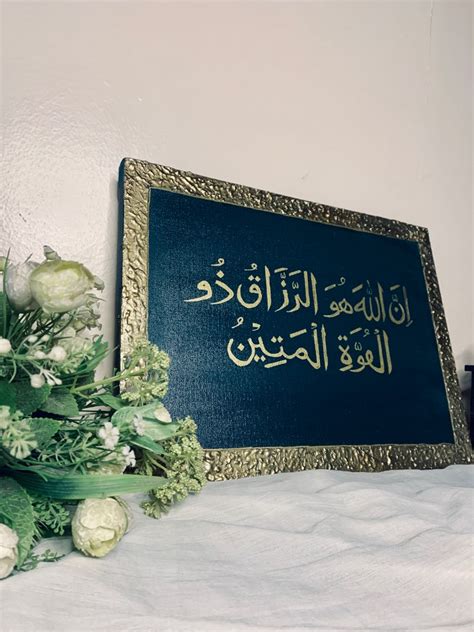 اِنَّ اللّٰهَ هُوَ الرَّزَّاقُ ذُو
الْقُوَّةِ الْمَتِيْنُ